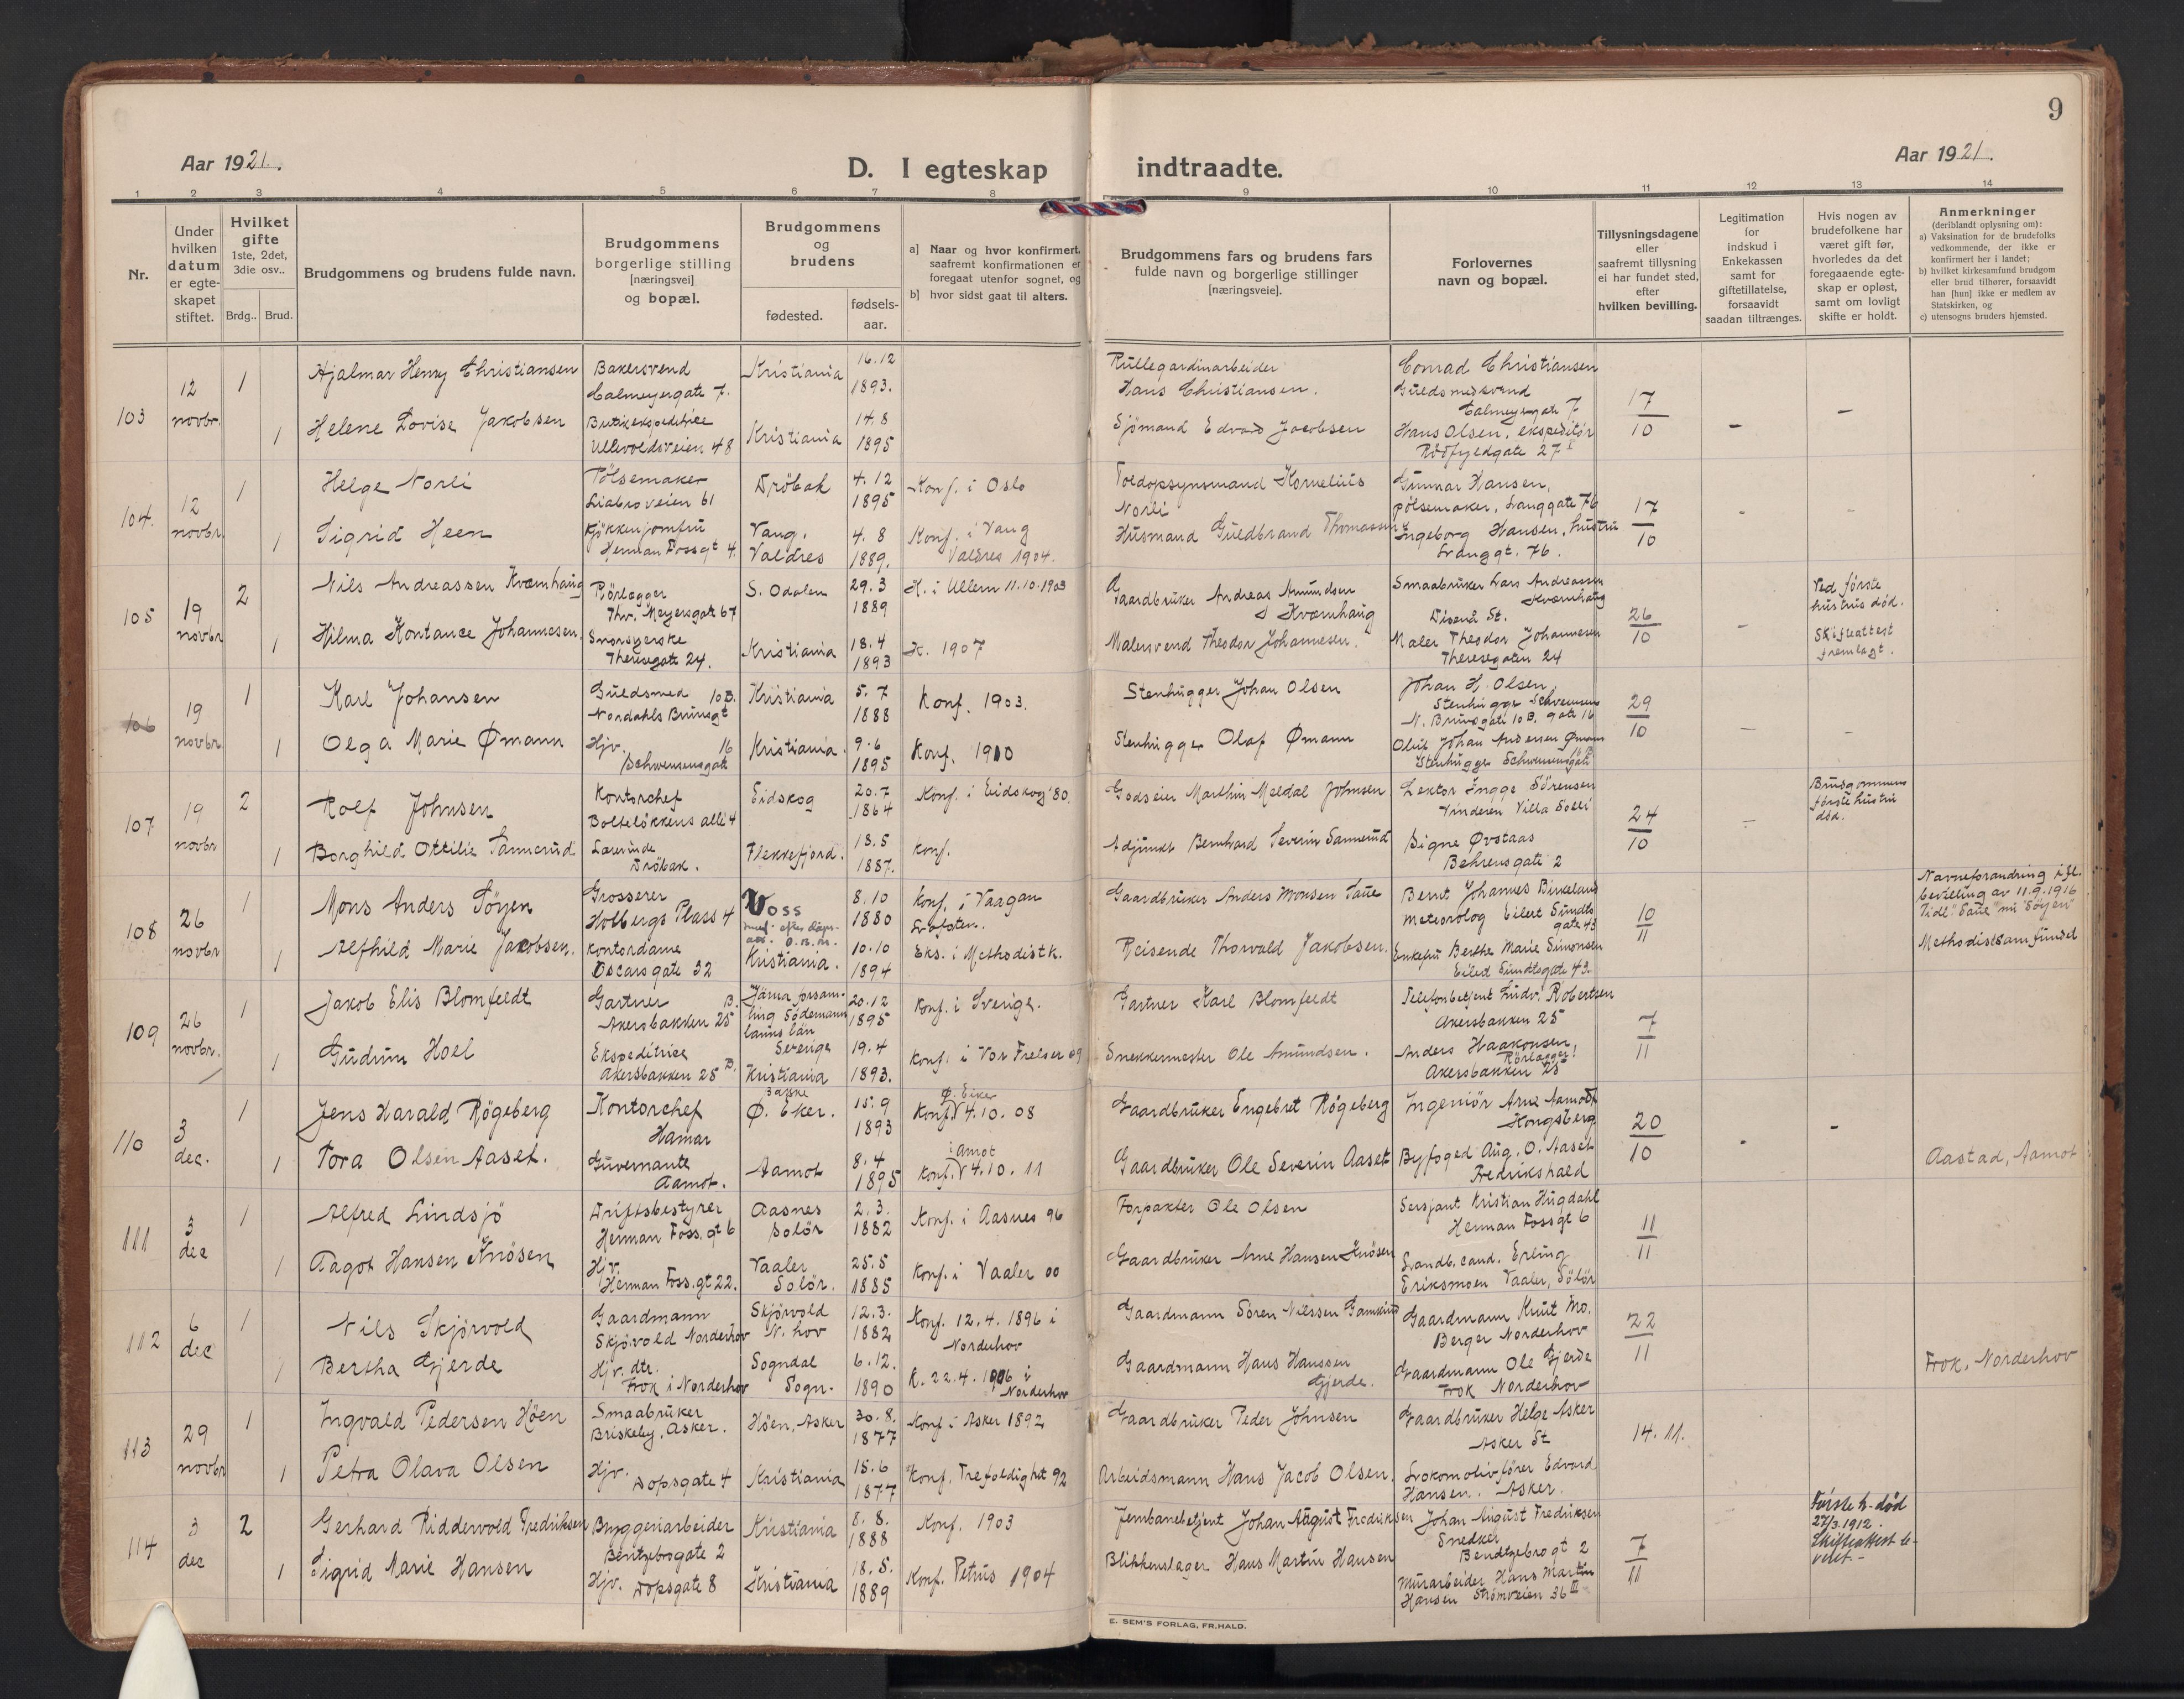 9
Aar 1921.
D. I egteskap indtraadte.
Aar 1921.
1 2 3 4 5 6 7 8 9 10 11 12 13 14
Nr.
Under hvilken datum er egteskapet stiftet.
Hvilket gifte 1ste, 2det, 3die osv..
Brdg.. Brud.
Brudgommens og brudens fulde navn.
Brudgommens borgerlige stilling [næringsvei] og bopæl.
Brudgommens og brudens
fødested.
fødsels-aar.
a] Naar og hvor konfirmert, saafremt konfirmationen er foregaat utenfor sognet, og
b] hvor sidst gaat til alters.
Brudgommens fars og brudens fars fulde navn og borgerlige stillinger [næringsveie].
Forlovernes navn og bopæl.
Tillysningsdagene eller saafremt tillysning ei har fundet sted, efter hvilken bevilling.
Legitimation for indskud i Enkekassen samt for giftetillatelse, forsaavidt saadan tiltrænges.
Hvis nogen av brudefolkene har været gift før, hvorledes da det foregaaende egteskap er opløst, samt om lovligt skifte er holdt.
Anmerkninger (deriblandt oplysning om):
a) Vaksination for de brudefolks vedkommende, der ikke er konfirmert her i landet;
b) hvilket kirkesamfund brudgom eller brud tilhører, forsaavidt han [hun] ikke er medlem av Statskirken, og
c) utensogns bruders hjemsted.
103 12 novbr.
1 Hjalmar Henry Christiansen Bakersvend Calmeyergate 7. Kristiania 16.12 1893. Rullegardinarbeider Hans Christiansen. Conrad Christiansen Guldsmedsvend Calmeyergate 7 17/10 - -
1 Helene Lovise Jakobsen Butikekspeditrice Ullevoldsveien 48 Kristiania 14.8 1895 Sjömand Edvard Jacobsen Hans Olsen, ekspeditör Rödfyldgate 27 I
104. 12 novbr.
1 Helge Norli Pölsemaker Liabroveien 61 Dröbak 4.12 1895 Konf. i Oslo Toldopsynsmand Kornelius Norli Gunnar Hansen, pölsemaker, Langgate 76 17/10 - -
1 Sigrid Heen Kjökkenjomfru Herman Fossgt 4. Vang, Valdres 4.8 1889. Konf. i Vang Valdres 1904. Husmand Guldbrand Thomassen Ingeborg Hansen, hustru Langgt. 76.
105 19 novbr
2 Nils Andreassen Kværnhaug Rörlægger Thv. Meyersgate 67 S. Odalen 29.3 1889 K. i Ullern 11.10.1903 Gaardbruker Andreas Amundsen Kværnhaug Smaabruker Lars Andreassen Kværnhaug Disenå St. 26/10 - Ved første hustrus død. Skifteattest fremlagt.
1 Hilma Kontance Johannesen. Theresegate 24. Kristiania 18.4 1893 K. 1907 Malersvend Theodor Johannesen. Maler Theodor Johannesen Theresegaten 24
106 19 novbr.
1 Karl Johansen Guldsmed 10B. Nordahls Brunsgt Kristiania 5.7 1888 Konf. 1903. Stenhugger Johan Olsen Johan H. Olsen, Stenhugger N. Brunsgate 10B. gate 16 29/10 - -
1 Olga Marie Ømann Hjv. 16 Schwensensgate Kristiania. 9.6 1895 Konf. 1910 Stenhugger Olaf Ømann Oluf Johan Andersen Ømann Stenhugger Schwensensgate
107 19 novbr
2 Rolf Johnsen Kontorchef Bolteløkkens alle 4 Eidskog 20.7 1864 Konf. i Eidskog '80. Godseier Marthin Meldal Johnsen Lektor Ingge Sörensen Vinderen Villa Solli 24/10 - Brudgommens første hustru død.
1 Borghild Ottilie Sannerud Lærerinde Dröbak. Flekkefjord. 13.5 1887. Konf. Adjunkt Bernhard Severin Sannerud Signe Øvstaas Behrensgate 2
108 26 novbr
1 Mons Anders Söyen Grosserer Holbergs Plass 4 Voss 8.10 1880 Konf. i Vaagan Lofoten. Gaardbruker Anders Monsen Saue Bernt Johannes Birkeland Meteorolog Eilert Sundts gate 43 10/11 Navneforandring ifl. bevilling av 11.9.1916 Tidl. "Saue" nu "Söyen" Methodistsamfundet
1 Alfhild Marie Jakobsen. Kontordame Oscars gate 32 Kristiania. 10.10 1894 Eks. i Methodistk. Reisende Thorvald Jakobsen. Enkefru Berthe Marie Simonsen Eilert Sundtsgate 43.
109 26 novbr.
1 Jakob Elis Blomfeldt Gartner B. Akersbakken 25 Järna forsamling Södermannlands län Sverige 20.12 1895 Konf. i Sverige. Gartner Karl Blomfeldt Telefonbetjent Ludv. Robertsen Akersbakken 25 7/11
1 Gudrun Hoel Ekspeditrice Akersbakken 25 B. Kristiania 19.4 1893. Konf. i Vor Frelser 09 Snekkermester Ole Amundsen. Anders Haakonsen, Rörlægger, Akersbakken 25
110 3 dec.
1 Jens Harald Røgeberg Kontorchef Hamar Ø. Eker. 15.9 1893 Ø. Eiker Konf. 4.10.08 Gaardbruker Engebret Røgeberg Ingeniör Arne Aamodt Kongsberg 20/10 - -
1 Tora Olsen Aaset. Guvernante Aamot. Aamot 8.4 1895 i Amot Konf. 4.10.11 Gaardbruker Ole Severin Aaset Byfoged Aug. O. Aaset Fredrikshald Aastad, Aamot
111 3 dec
1 Alfred Lindsjö Driftsbestyrer Herman Foss. gt 6 Aasnes Solör 2.3. 1882 Konf. i Aasnes 96 Forpakter Ole Olsen Sersjant Kristian Hugdahl Herman Fossgt 6 11/11
1 Aagot Hansen Knösen Hjv. Herman Foss. gt 22. Vaaler Solör. 25.5 1885 Konf. i Vaaler 00 Gaardbruker Arne Hansen Knösen Landb. cand. Erling Eriksmoen Vaaler, Sölör
112 6 dec
1 Nils Skjörvold Gaardmann Skjörvold Norderhov Skjörvold N. hov 12.3. 1882 Konf. 12.4.1896 i Norderhov Gaardmann Sören Nilssen Gaardmann Knut Mo. Berger Norderhov 22/11
1 Bertha Gjerde Hjv. dtr. Frok i Norderhov Sogndal Sogn. 6.12. 1890 K. 22.4.1906 i Norderhov Gaardmann Hans Hanssen Gjerde. Gaardmann Ole Gjerde Frok Norderhov Frok, Norderhov
113 29 novbr
1 Ingvald Pedersen Höen Smaabruker Briskeby, Asker. Höen, Asker 30.8. 1877 Konf. i Asker 1892 Gaardbruker Peder Johnsen Gaardbruker Helge Asker Asker St 14.11.
1 Petra Olava Olsen Hjv. Dopsgate 4 Kristiania 15.6 1877 Konf. Trefoldighet 92 Arbeidsmann Hans Jacob Olsen. Lokomotivfører Edvard Hansen. Asker.
114 3 dec
2 Gerhard Riddervold Fredriksen Bryggeriarbeider Bentzebrogate 2 Kristiania 8.8. 1888 Konf. 1903 Jernbanebetjent Johan August Fredriksen Johan August Fredriksen Snedker Bendtzebrogt 2 7/11 - Første h. død 27/3.1912. Skifteattest levert.-
1 Sigrid Marie Hansen Hjv. Dopsgate 8 Kristiania 18.5. 1889 Konf. Petrus 1904 Blikkenslager Hans Martin Hansen Murarbeider Hans Martin Hansen Strömsveien 36 III
E. SEM'S FORLAG, FR.HALD.